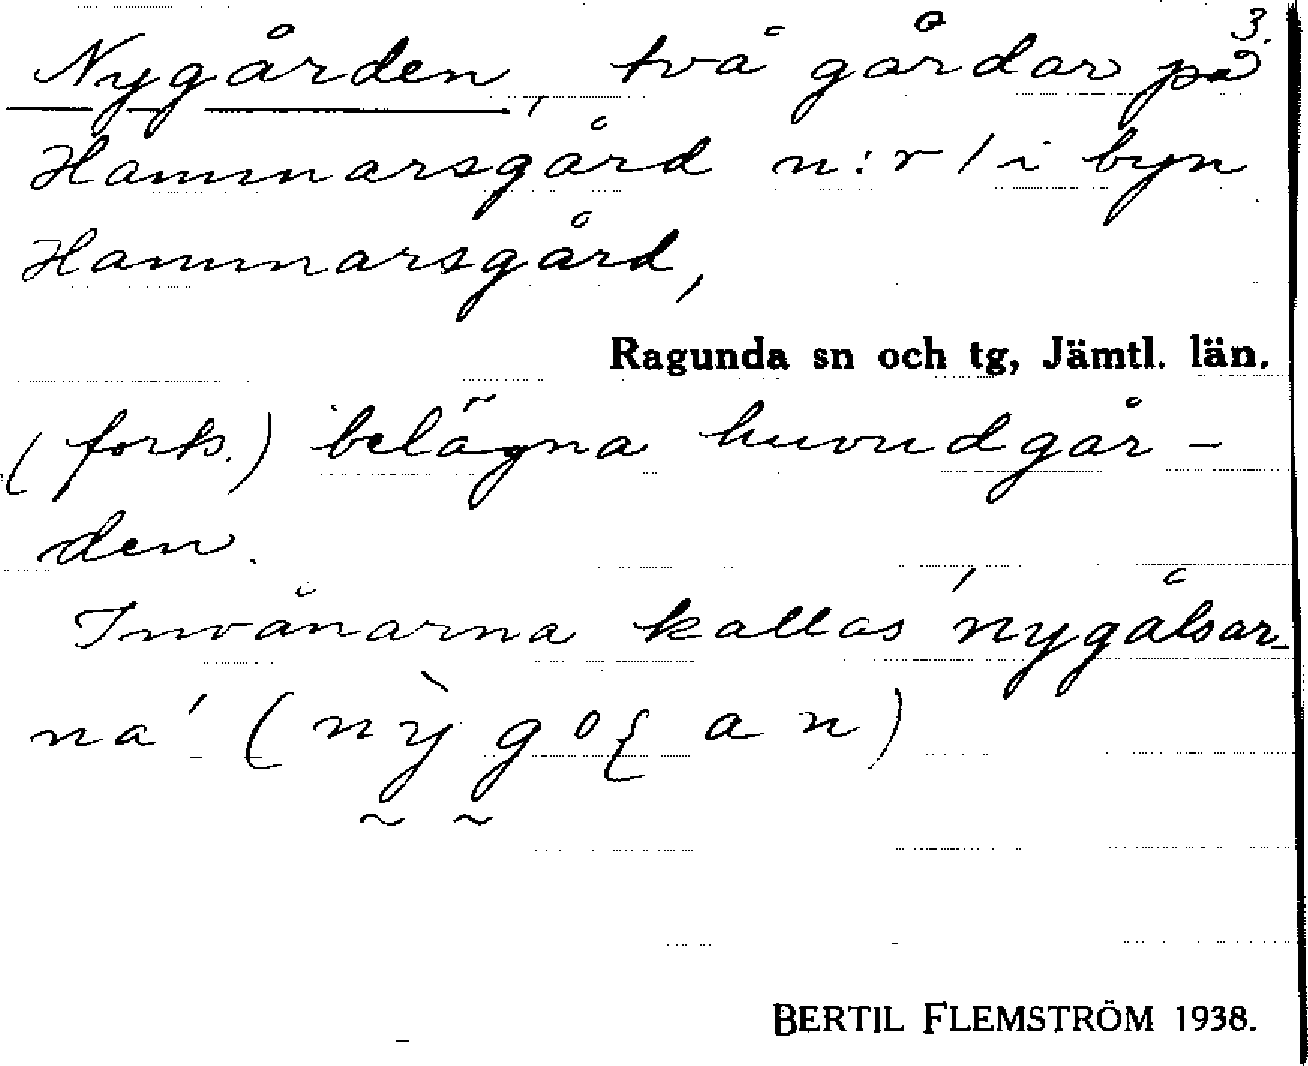 3.
Nygården, två gårdar på
Hammarsgård n:r 1 i byn
Hammarsgård,
Ragunda sn och tg, Jämtl. län.
(forts.) belägna huvudgår-
den.
Invånarna kallas 'nygålsar-
na' (
BERTIL FLEMSTRÖM 1938.